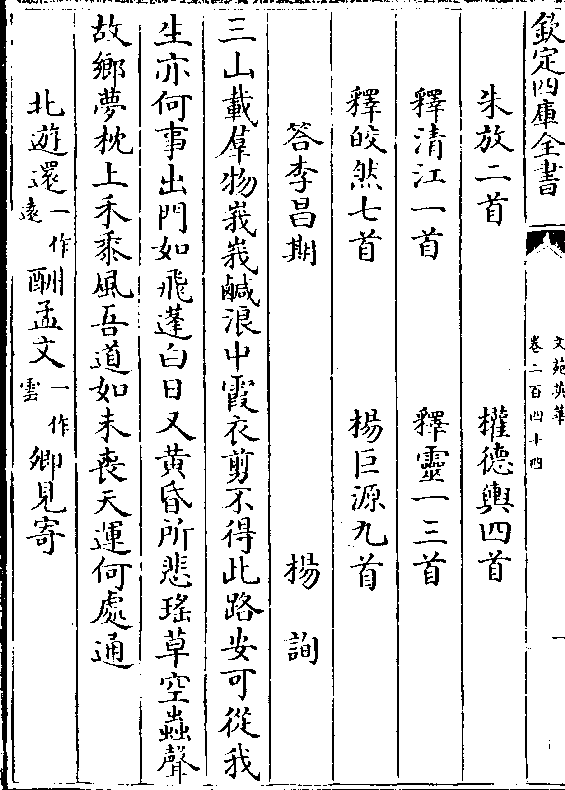 欽定四庫全書
文苑英華
卷二百四十四
一
朱放二首 權德輿四首
釋清江一首 釋靈一三首
釋皎然七首 楊巨源九首
答李昌期 楊詢
三山載羣物峩峩鹹浪中霞衣剪不得此路安可從我
生亦何事出門如飛蓬白日又黃昏所悲瑤草空蟲聲
故鄉夢枕上禾黍風吾道如未喪天運何處通
北遊還一作遠酬孟文一作雲卿見寄